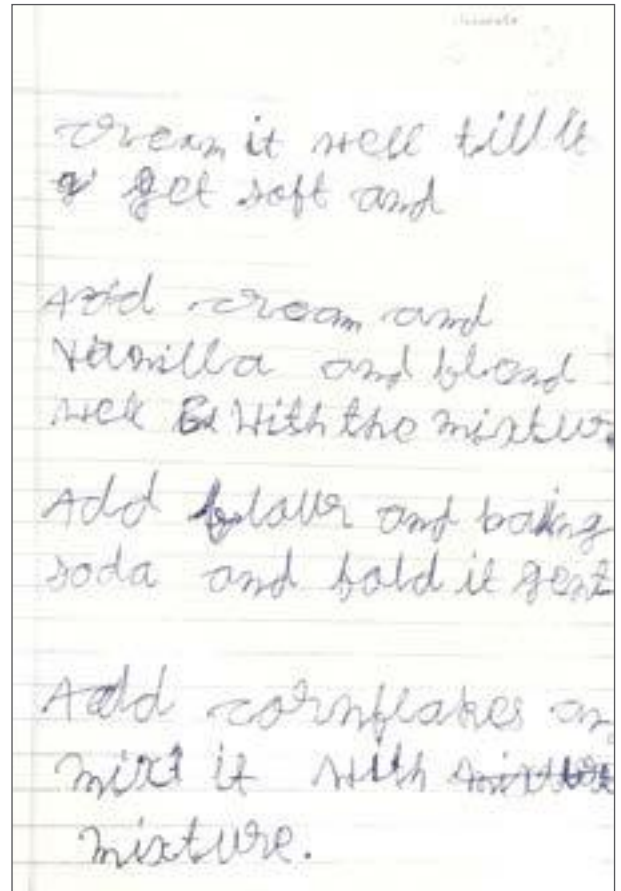 cream it well till it
get soft and
Add cream and
Vanilla and blend
well with the mixtur
Add flour and baking
soda and fold it gent
Add cornflakes an
mix it with mixture
mixture.